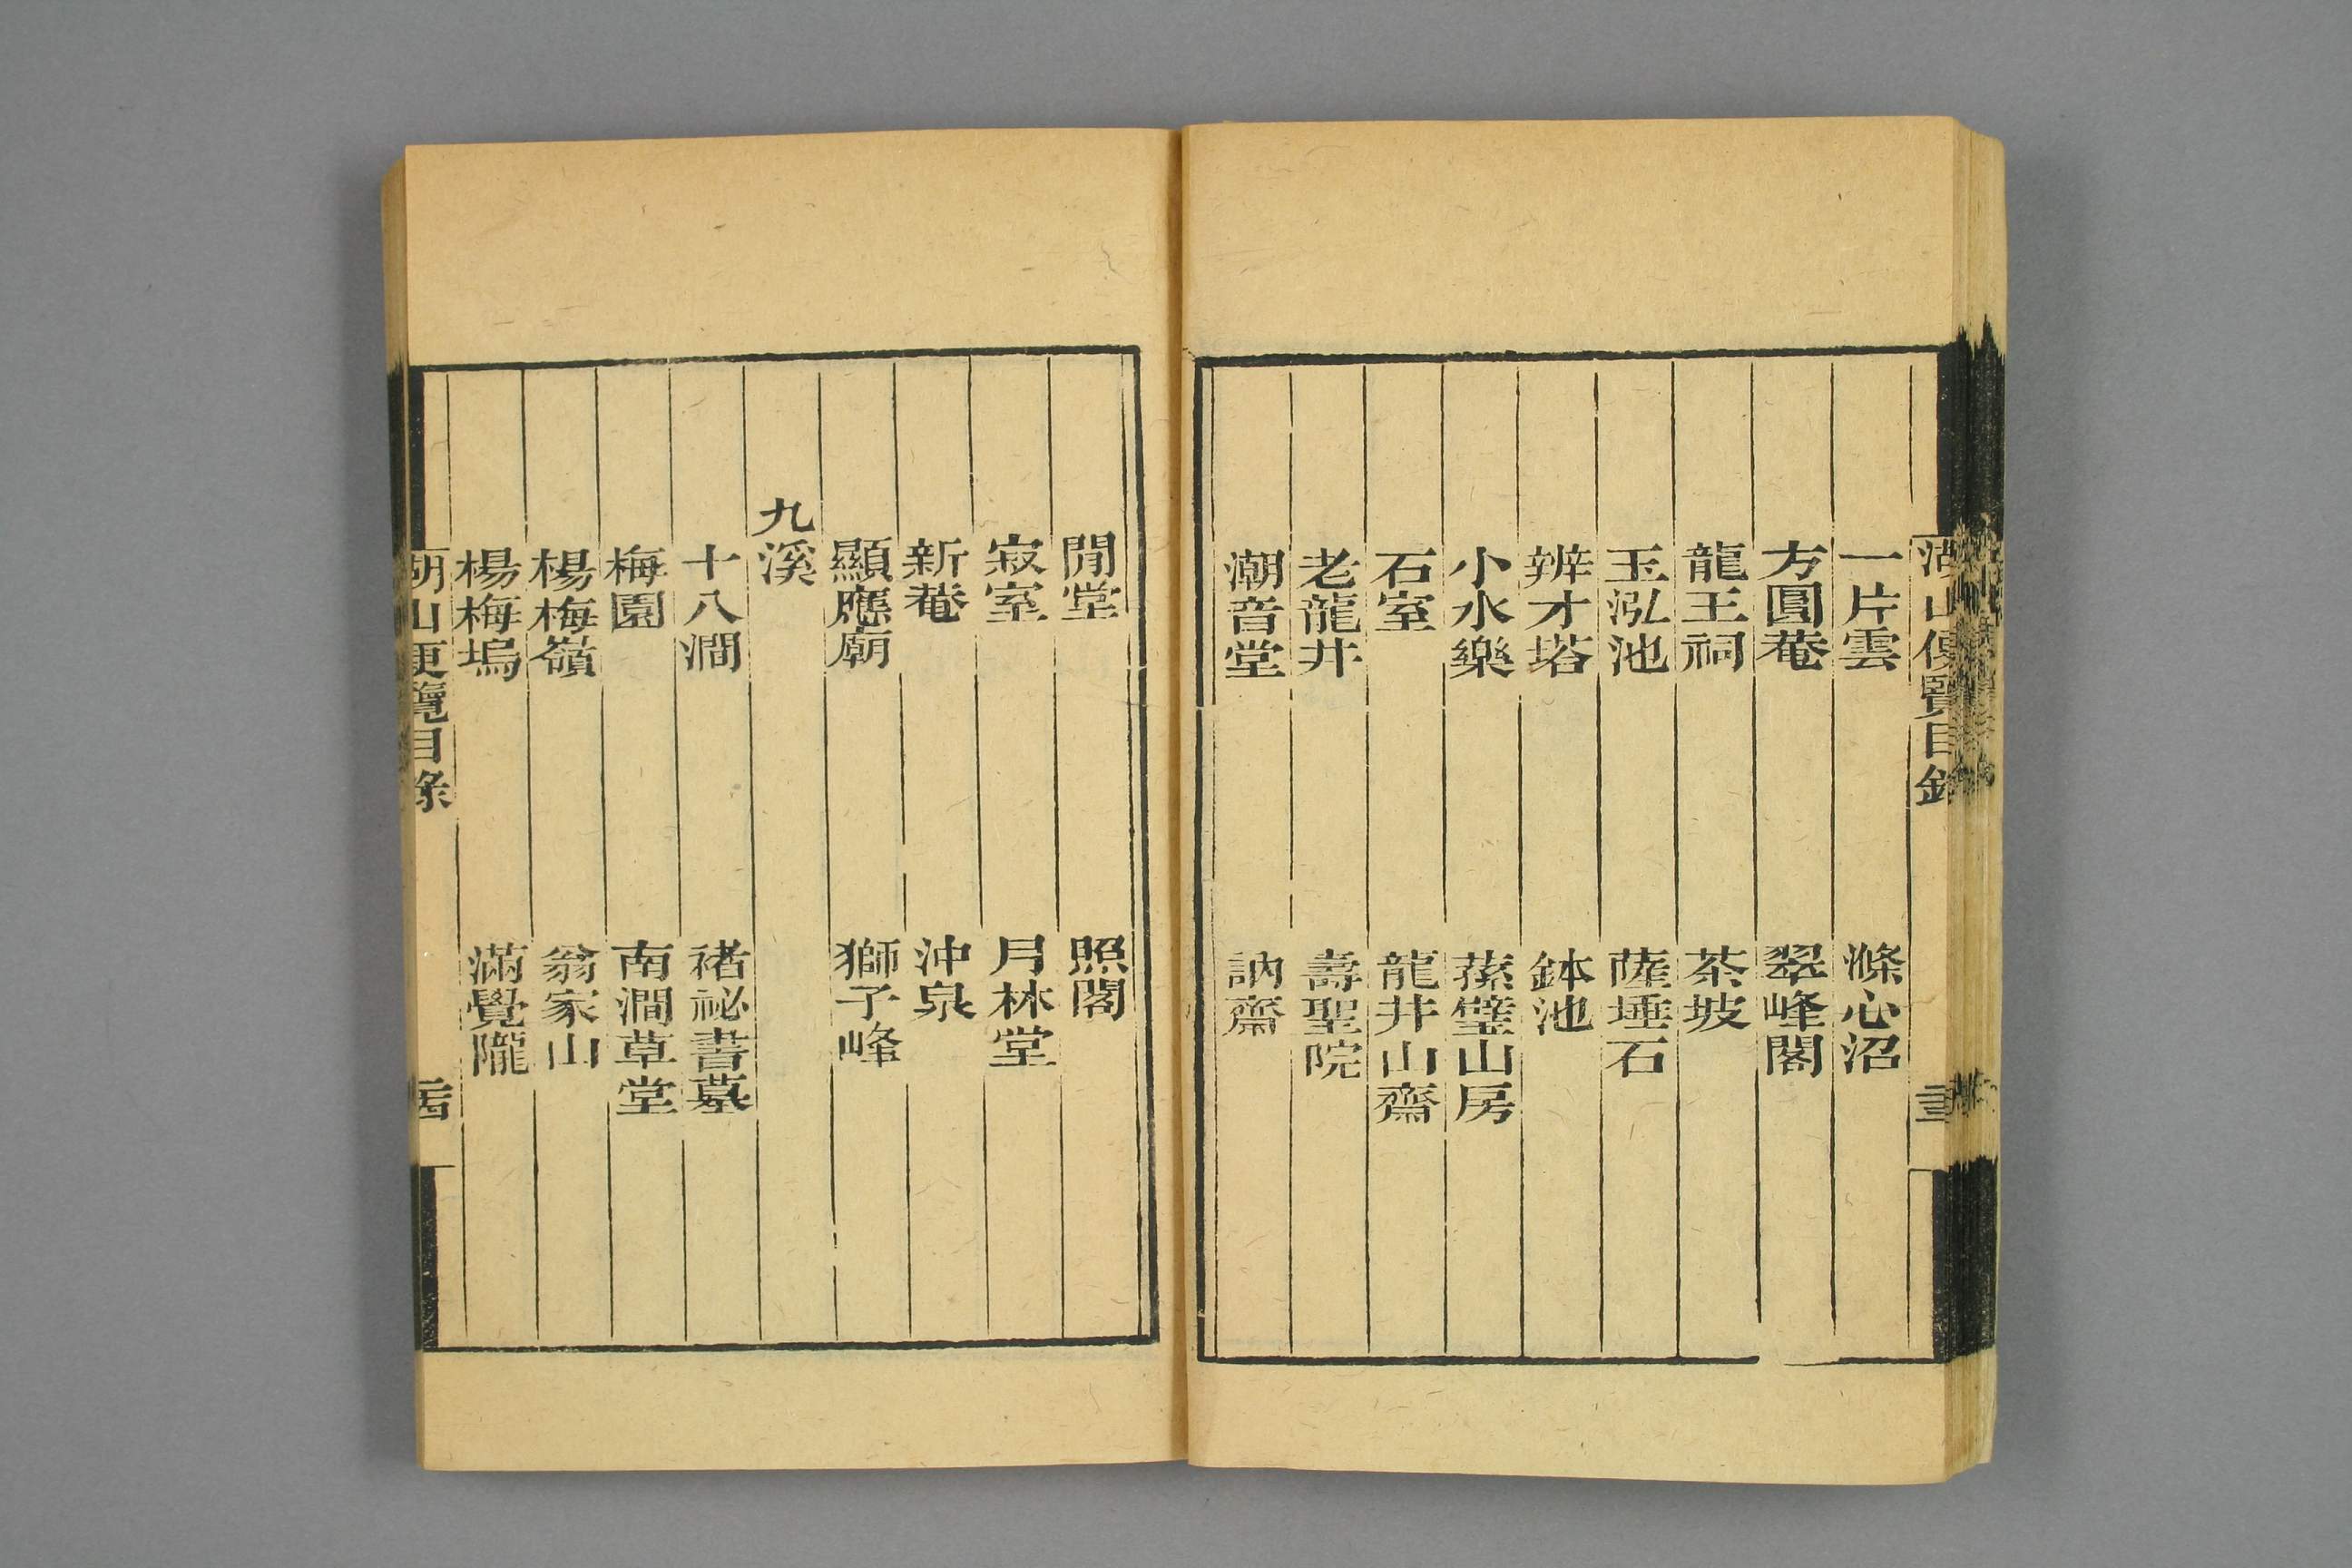 湖山便覽目錄
一片雲 滌心沼
方圓菴 翠峰閣
龍王祠 茶坡
玉泓池 薩埵石
辨才塔 鉢池
小水樂 蓀璧山房
石室 龍井山齋
老龍井 壽聖院
潮音堂 訥齋
閒堂 照閣
寂室 月林堂
新菴 沖泉
顯應廟 獅子峰
九溪
十八澗 褚祕書墓
梅園 南澗草堂
楊梅嶺 翁家山
楊梅塢 滿覺隴
湖山便覽目錄